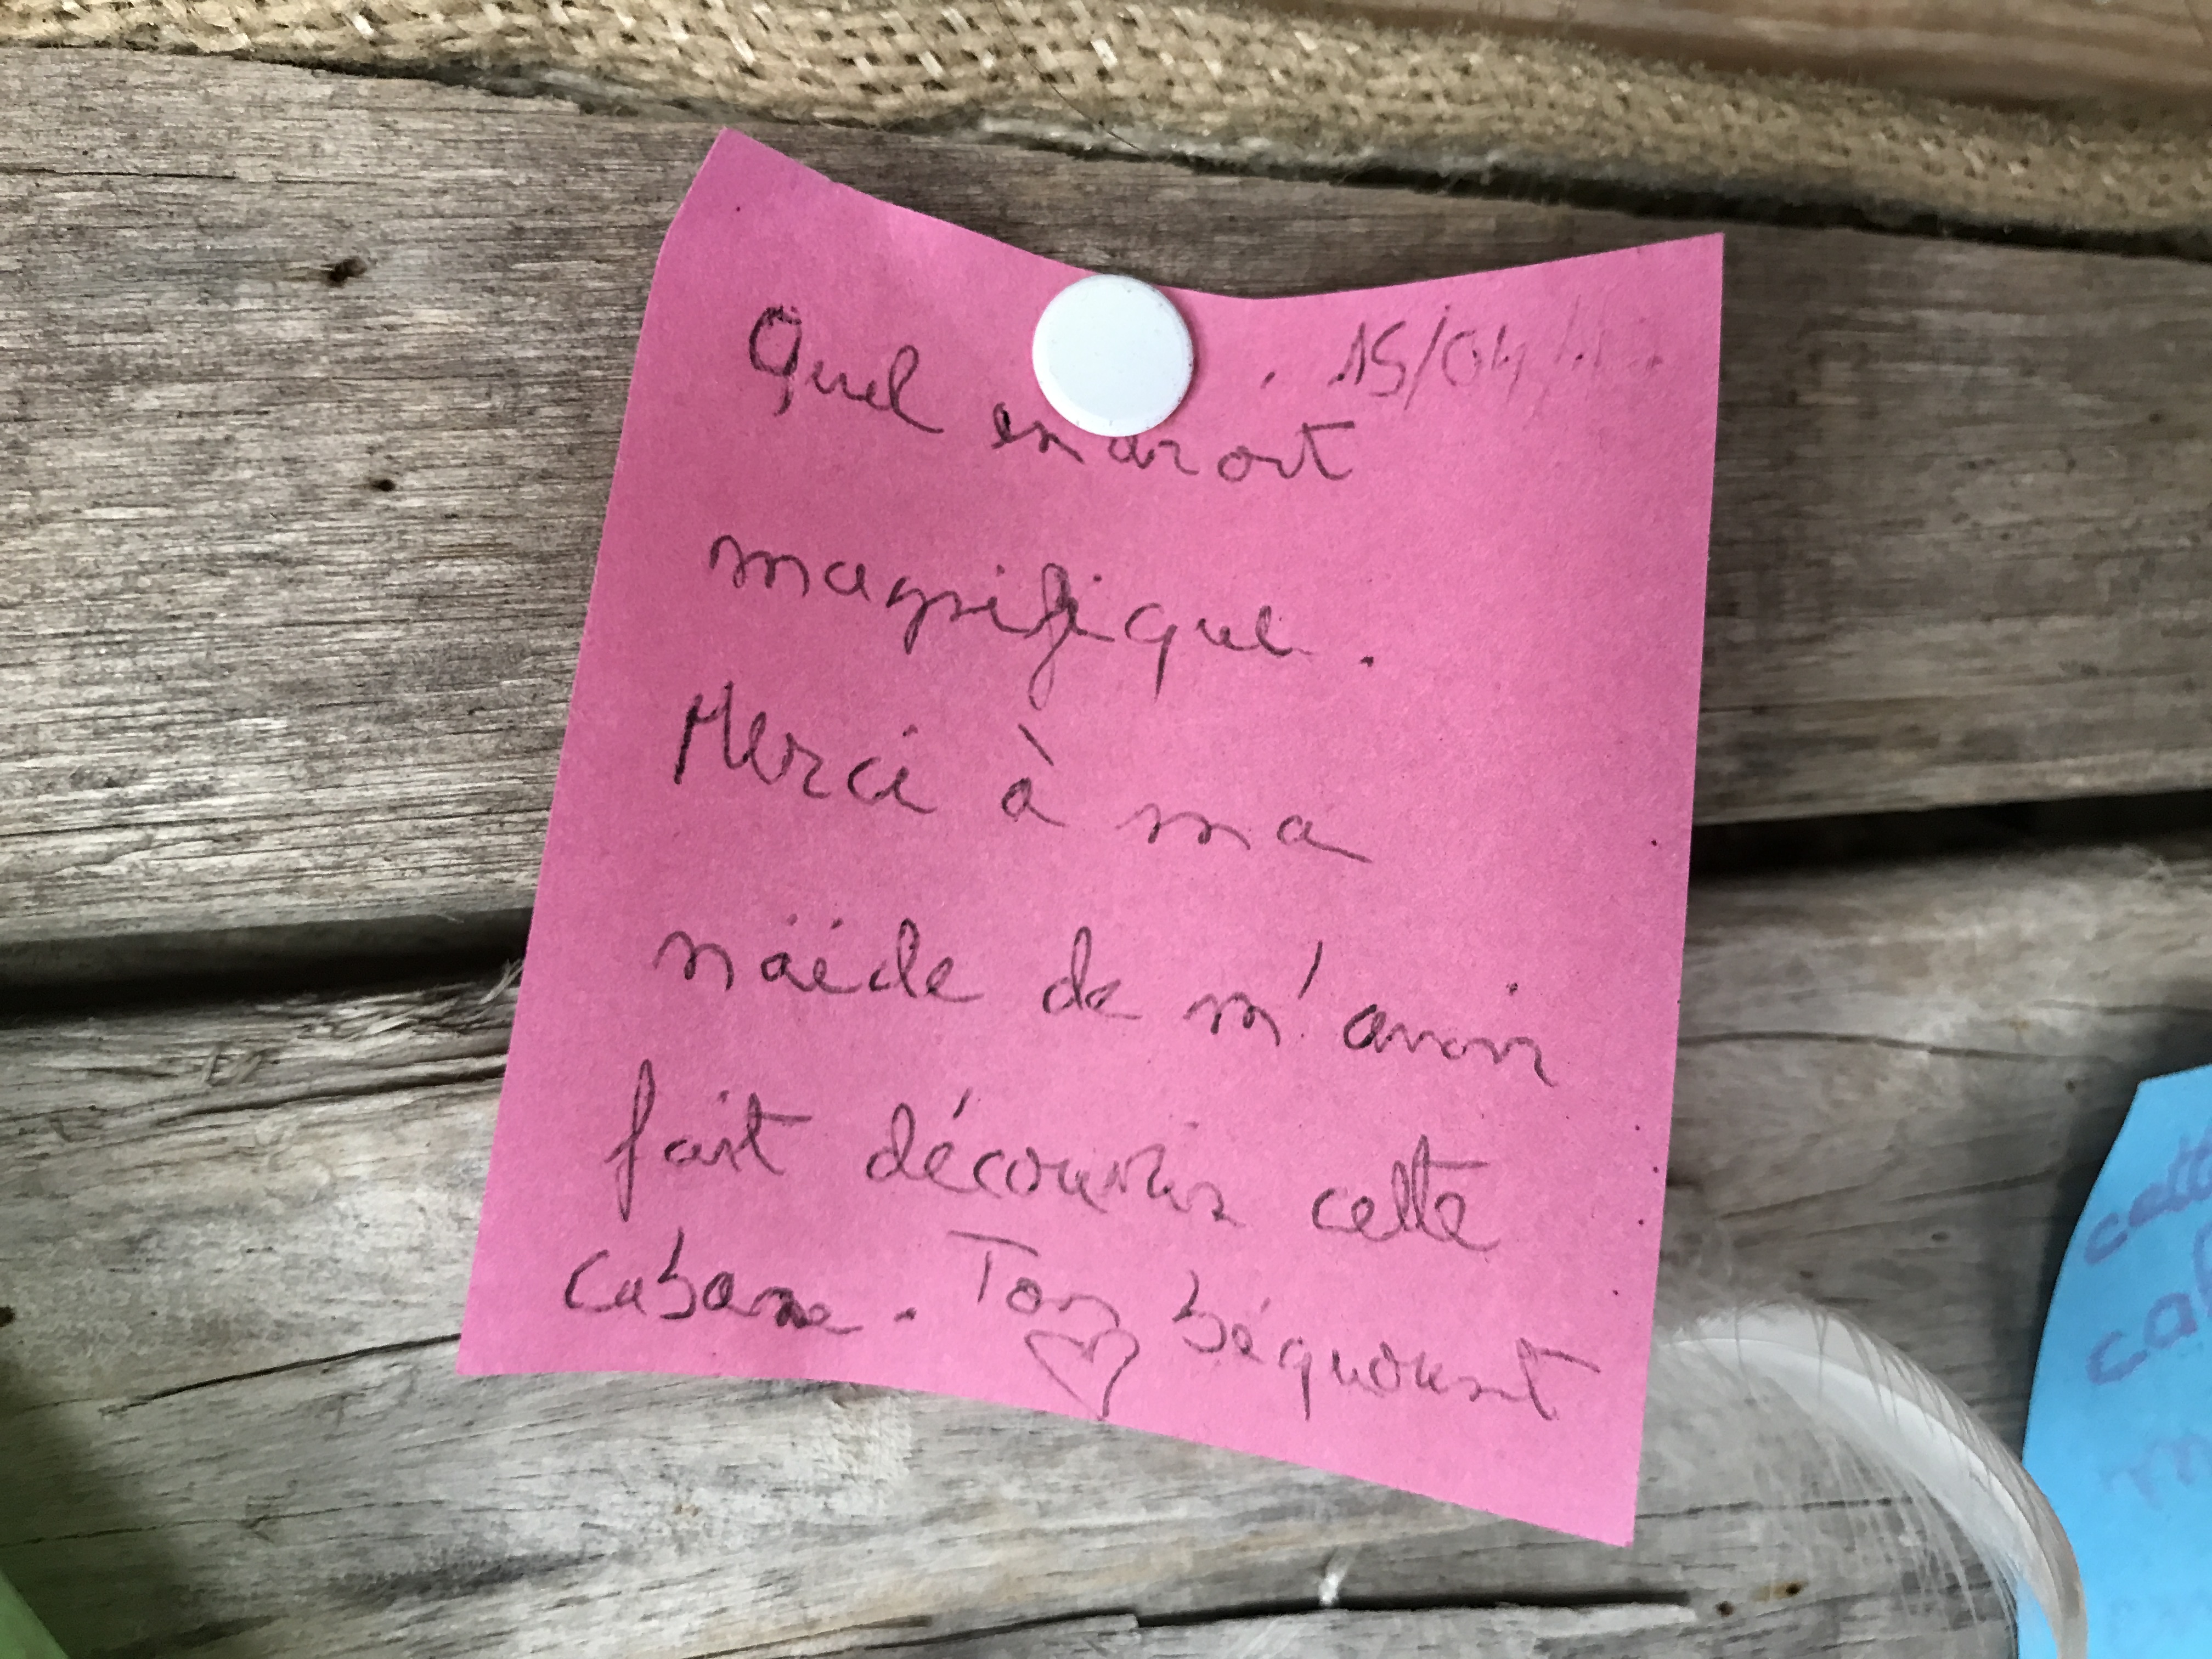 15/04
Quel endroit
magnifique.
Merci à ma
näide de m'avoir
fait découvrir cette
cabane. Ton béquount
cett
ca